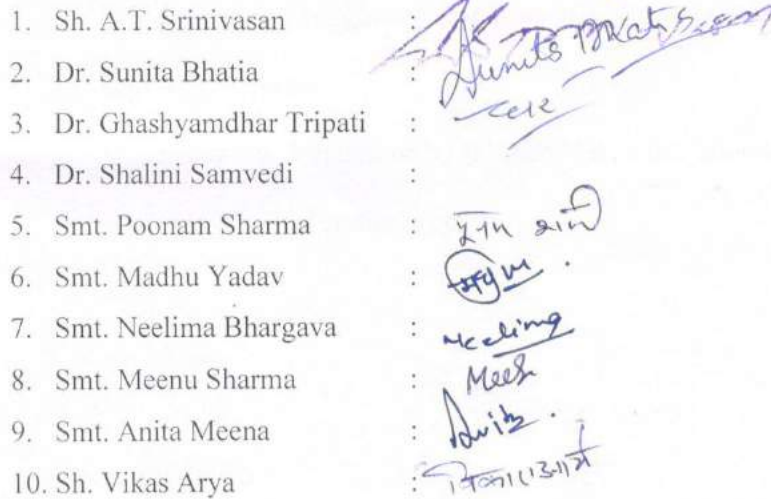 1. Sh. A.T. Srinivasan :
2. Dr. Sunita Bhatia : Sunita Bhatia
3. Dr. Ghashyamdhar Tripati :
4. Dr. Shalini Samvedi :
5. Smt. Poonam Sharma :
6. Smt. Madhu Yadav :
7. Smt. Neelima Bhargava : Neelima
8. Smt. Meenu Sharma :
9. Smt. Anita Meena : Anita
10. Sh. Vikas Arya :